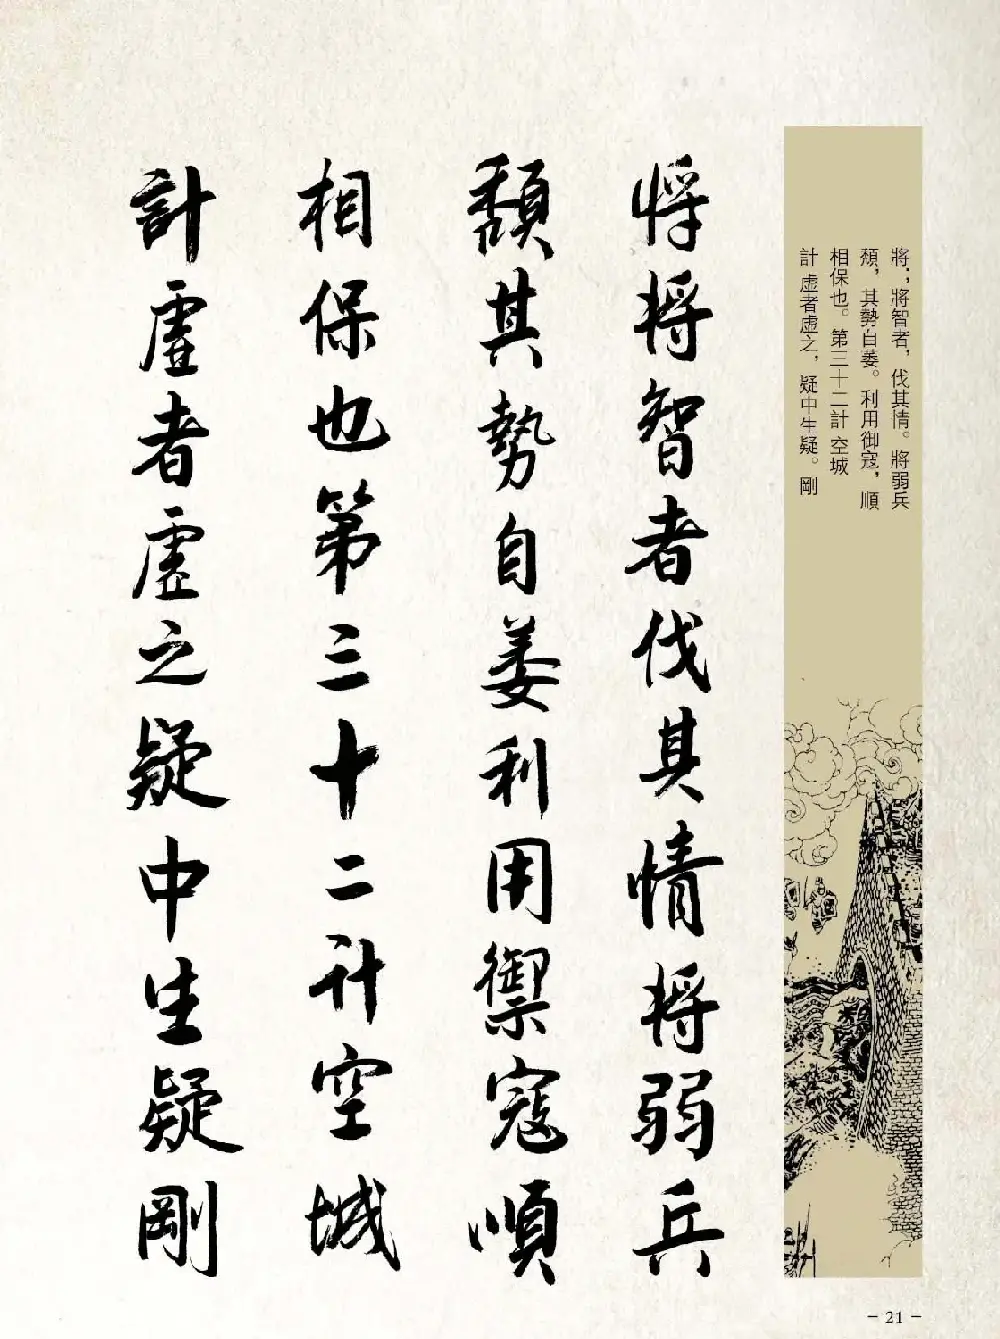 將；將智者，伐其情。將弱兵
頹，其勢自萎。利用御寇，順
相保也。第三十二計 空城
計 虛者虛之，疑中生疑。剛
將將智者伐其情將弱兵
頹其勢自萎利用禦寇順
相保也第三十二計空城
計虛者虛之疑中生疑剛
- 21 -